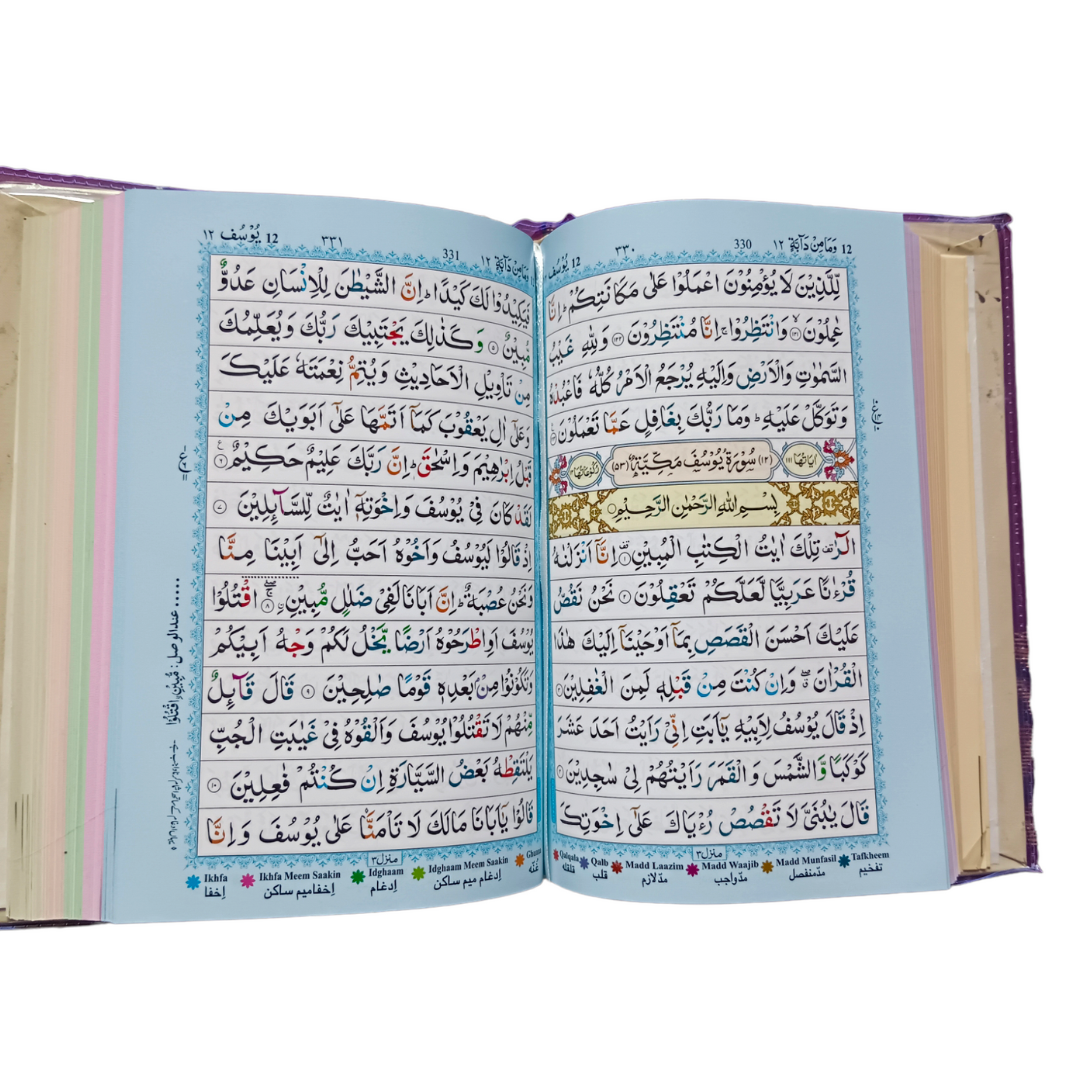 12 وَمَا مِنْ دَآبَّةٍ ١٢
330
٣٣٠
12 يُوْسُف
لِّلَّذِيْنَ لَا يُؤْمِنُوْنَ اعْمَلُوْا عَلٰى مَكَانَتِكُمْ ؕ اِنَّا
عٰمِلُوْنَ ۙ﴿١٢١﴾ وَانْتَظِرُوْا ۚ اِنَّا مُنْتَظِرُوْنَ ﴿١٢٢﴾ وَلِلّٰهِ غَيْبُ
السَّمٰوٰتِ وَالْاَرْضِ وَاِلَيْهِ يُرْجَعُ الْاَمْرُ كُلُّهٗ فَاعْبُدْهُ
وَتَوَكَّلْ عَلَيْهِ ؕ وَمَا رَبُّكَ بِغَافِلٍ عَمَّا تَعْمَلُوْنَ
اٰيَاتُهَا ١١١ (١٢) سُوْرَةُ يُوْسُفَ مَكِّيَّةٌ (٥٣) رُكُوْعَاتُهَا
بِسْمِ اللّٰهِ الرَّحْمٰنِ الرَّحِيْمِ
الٓرٰ ۫ تِلْكَ اٰيٰتُ الْكِتٰبِ الْمُبِيْنِ ﴿١﴾ اِنَّاۤ اَنْزَلْنٰهُ
قُرْءٰنًا عَرَبِيًّا لَّعَلَّكُمْ تَعْقِلُوْنَ ﴿٢﴾ نَحْنُ نَقُصُّ
عَلَيْكَ اَحْسَنَ الْقَصَصِ بِمَاۤ اَوْحَيْنَاۤ اِلَيْكَ هٰذَا
الْقُرْاٰنَ ۖ وَاِنْ كُنْتَ مِنْ قَبْلِهٖ لَمِنَ الْغٰفِلِيْنَ ﴿٣﴾
اِذْ قَالَ يُوْسُفُ لِاَبِيْهِ يٰۤاَبَتِ اِنِّيْ رَاَيْتُ اَحَدَ عَشَرَ
كَوْكَبًا وَّالشَّمْسَ وَالْقَمَرَ رَاَيْتُهُمْ لِيْ سٰجِدِيْنَ ﴿٤﴾
قَالَ يٰبُنَيَّ لَا تَقْصُصْ رُءْيَاكَ عَلٰۤى اِخْوَتِكَ
منزل ٣
Qalqala Qalb Madd Laazim Madd Waajib Madd Munfasil Tafkheem
قلقله قلب مدّلازم مدّواجب مدّمنفصل تفخيم
وَمَا مِنْ دَآبَّةٍ ١٢
331
٣٣١
12 يُوْسُف ١٢
فَيَكِيْدُوْا لَكَ كَيْدًا ؕ اِنَّ الشَّيْطٰنَ لِلْاِنْسَانِ عَدُوٌّ
مُّبِيْنٌ ﴿٥﴾ وَكَذٰلِكَ يَجْتَبِيْكَ رَبُّكَ وَيُعَلِّمُكَ
مِنْ تَاْوِيْلِ الْاَحَادِيْثِ وَيُتِمُّ نِعْمَتَهٗ عَلَيْكَ
وَعَلٰۤى اٰلِ يَعْقُوْبَ كَمَاۤ اَتَمَّهَا عَلٰۤى اَبَوَيْكَ مِنْ
قَبْلُ اِبْرٰهِيْمَ وَاِسْحٰقَ ؕ اِنَّ رَبَّكَ عَلِيْمٌ حَكِيْمٌ ﴿٦﴾
لَقَدْ كَانَ فِيْ يُوْسُفَ وَاِخْوَتِهٖۤ اٰيٰتٌ لِّلسَّآىِٕلِيْنَ ﴿٧﴾
اِذْ قَالُوْا لَيُوْسُفُ وَاَخُوْهُ اَحَبُّ اِلٰۤى اَبِيْنَا مِنَّا
وَنَحْنُ عُصْبَةٌ ؕ اِنَّ اَبَانَا لَفِيْ ضَلٰلٍ مُّبِيْنِ ۚ﴿٨﴾ اۨقْتُلُوْا
يُوْسُفَ اَوِ اطْرَحُوْهُ اَرْضًا يَّخْلُ لَكُمْ وَجْهُ اَبِيْكُمْ
وَتَكُوْنُوْا مِنْۢ بَعْدِهٖ قَوْمًا صٰلِحِيْنَ ﴿٩﴾ قَالَ قَآىِٕلٌ
مِّنْهُمْ لَا تَقْتُلُوْا يُوْسُفَ وَاَلْقُوْهُ فِيْ غَيٰبَتِ الْجُبِّ
يَلْتَقِطْهُ بَعْضُ السَّيَّارَةِ اِنْ كُنْتُمْ فٰعِلِيْنَ ﴿١٠﴾
قَالُوْا يٰۤاَبَانَا مَالَكَ لَا تَاْمَنَّا عَلٰى يُوْسُفَ وَاِنَّا
منزل ٣
Ikhfa Ikhfa Meem Saakin Idghaam Idghaam Meem Saakin
اِخفا اِخفاميم ساكن اِدغام اِدغام ميم ساكن غُنّه
عند الوصل: مُّبِيْنِ اقْتُلُوْا